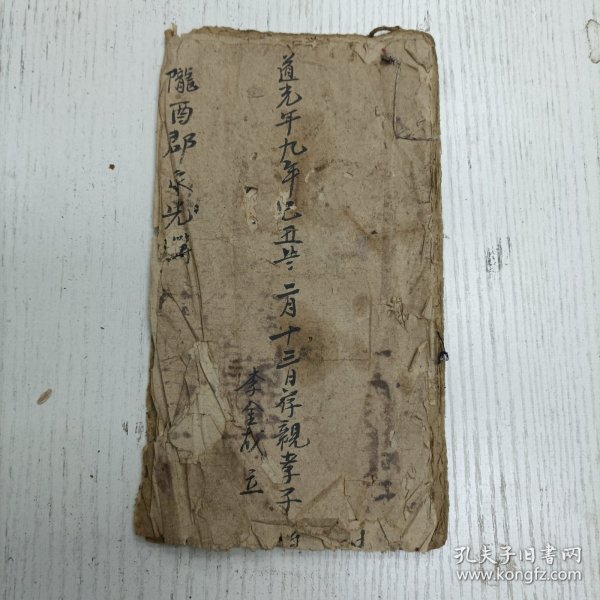 道光年九年己丑歲二月十三日荐親孝子
李金成 立
隴酉郡永光簿
孔夫子旧书网
www.kongfz.com